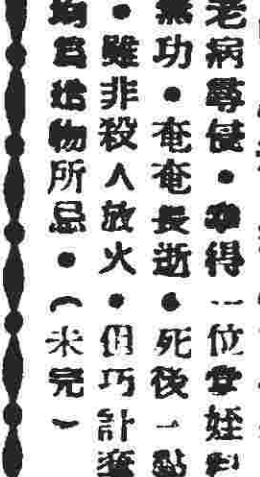 老病尋侵·幸得一位安姪
無功·奄奄長逝·死後一點
雖非殺人放火·但巧計
均爲造物所忌·(未完)